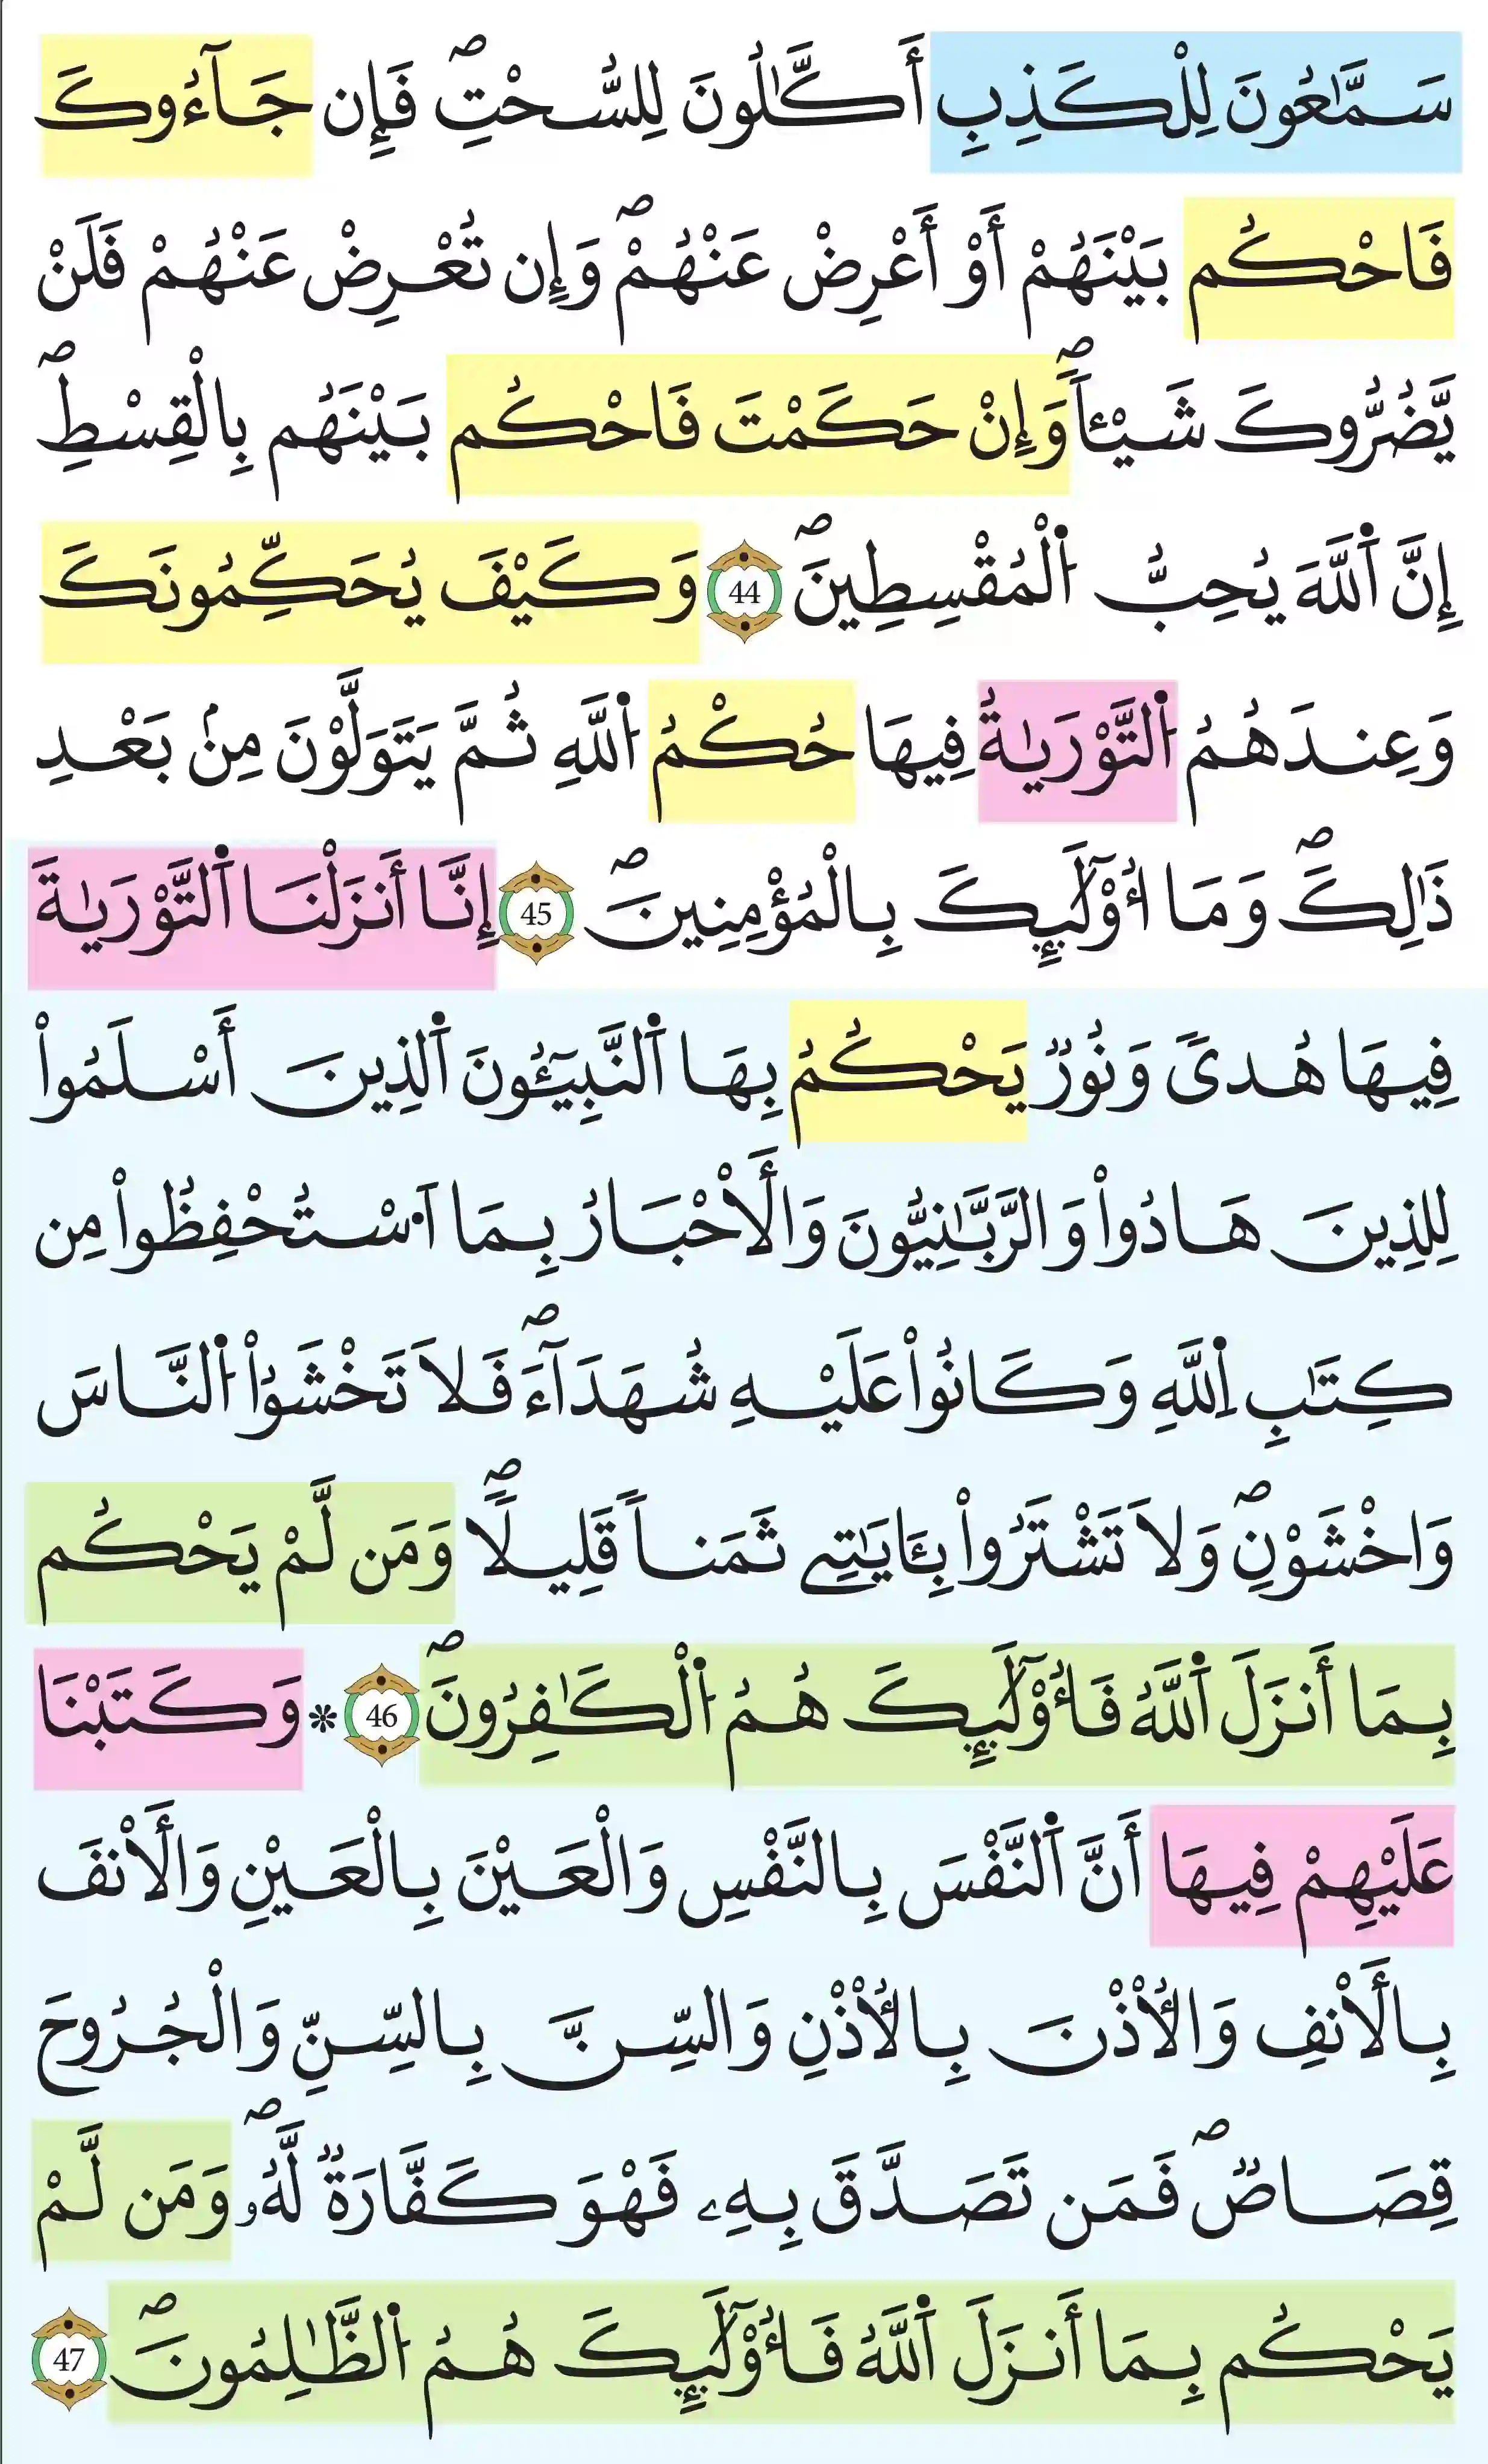 سَمَّٰعُونَ لِلْكَذِبِ أَكَّٰلُونَ لِلسُّحْتِۖ فَإِن جَآءُوكَ
فَاحْكُم بَيْنَهُمْ أَوْ أَعْرِضْ عَنْهُمْۖ وَإِن تُعْرِضْ عَنْهُمْ فَلَنْ
يَّضُرُّوكَ شَيْـٔاًۖ وَإِنْ حَكَمْتَ فَاحْكُم بَيْنَهُم بِالْقِسْطِۖ
إِنَّ اَ۬للَّهَ يُحِبُّ اُ۬لْمُقْسِطِينَۖ 44 وَكَيْفَ يُحَكِّمُونَكَ
وَعِندَهُمُ اُ۬لتَّوْرَيٰةُ فِيهَا حُكْمُ اُ۬للَّهِ ثُمَّ يَتَوَلَّوْنَ مِنۢ بَعْدِ
ذَٰلِكَۖ وَمَا أُوْلَٰٓئِكَ بِالْمُؤْمِنِينَۖ 45 إِنَّا أَنزَلْنَا اَ۬لتَّوْرَيٰةَ
فِيهَا هُدىً وَنُورٌ يَحْكُمُ بِهَا اَ۬لنَّبِيٓـُٔونَ اَ۬لذِينَ أَسْلَمُواْ
لِلذِينَ هَادُواْ وَالرَّبَّٰنِيُّونَ وَالْأَحْبَارُ بِمَا اَ۟سْتُحْفِظُواْ مِن
كِتَٰبِ اِ۬للَّهِ وَكَانُواْ عَلَيْهِ شُهَدَآءَۖ فَلَا تَخْشَوُاْ اُ۬لنَّاسَ
وَاخْشَوْنِۖ وَلَا تَشْتَرُواْ بِـَٔايَٰتِے ثَمَناً قَلِيلاًۖ وَمَن لَّمْ يَحْكُم
بِمَا أَنزَلَ اَ۬للَّهُ فَأُوْلَٰٓئِكَ هُمُ اُ۬لْكَٰفِرُونَۖ 46 * وَكَتَبْنَا
عَلَيْهِمْ فِيهَا أَنَّ اَ۬لنَّفْسَ بِالنَّفْسِ وَالْعَيْنَ بِالْعَيْنِ وَالْأَنفَ
بِالْأَنفِ وَالْأُذْنَ بِالْأُذْنِ وَالسِّنَّ بِالسِّنِّ وَالْجُرُوحَ
قِصَاصٌۖ فَمَن تَصَدَّقَ بِهِۦ فَهْوَ كَفَّارَةٌ لَّهُۥۖ وَمَن لَّمْ
يَحْكُم بِمَا أَنزَلَ اَ۬للَّهُ فَأُوْلَٰٓئِكَ هُمُ اُ۬لظَّٰلِمُونَۖ 47